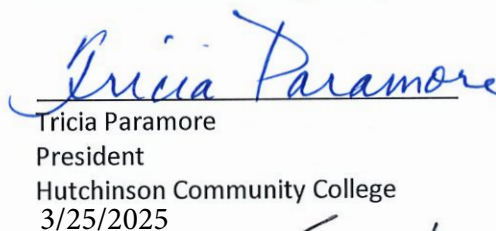 Tricia Paramore
Tricia Paramore
President
Hutchinson Community College
3/25/2025